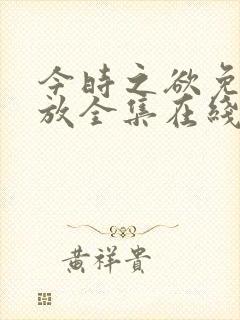 今时之欲免
放全集在綫
黄祥貴